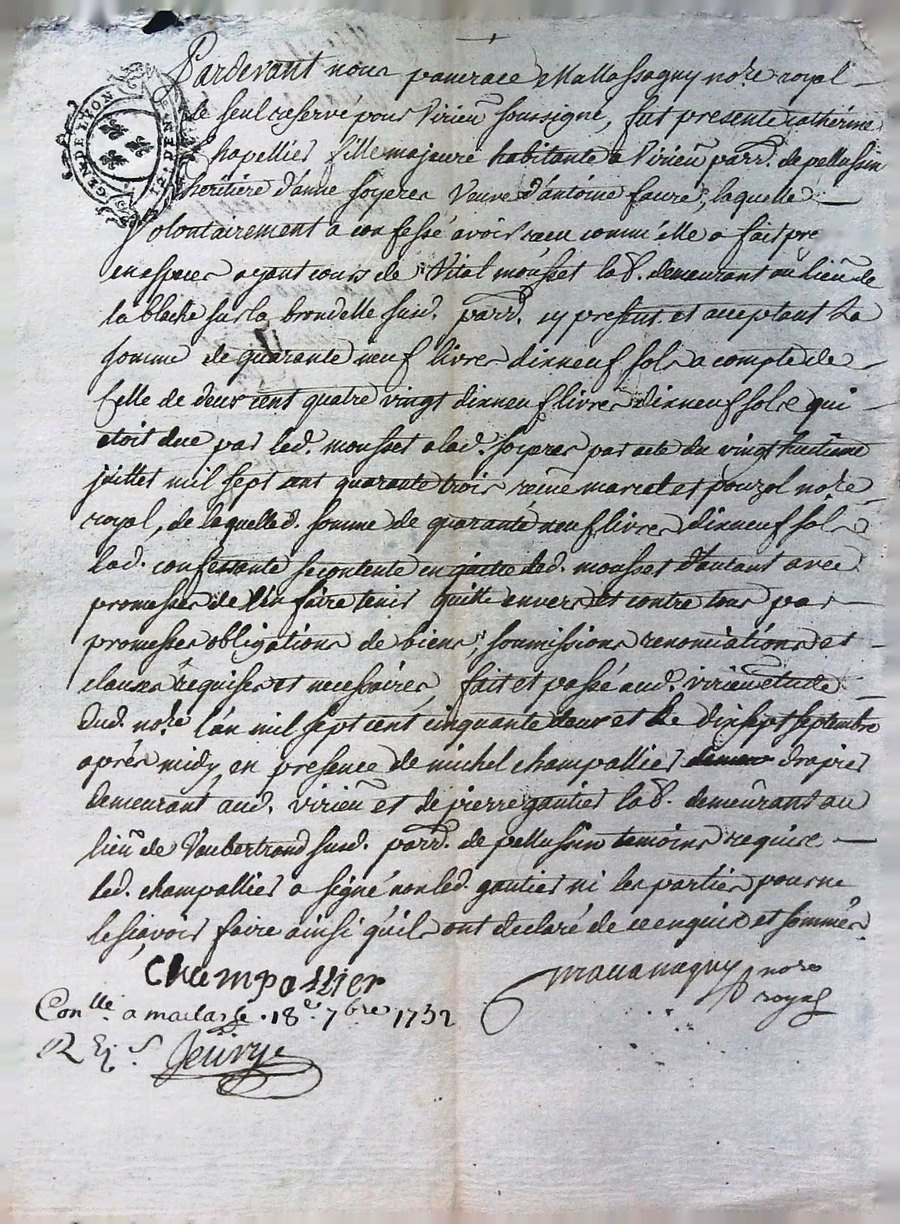 GEN DE LYON
Pardevant nous pancrace Mallassagny nore royal
le seul reservé pour Virieu soussigné, fut presente catherine
Chapellier fille majeure habitante a Virieu parr. de pellussin
heritiere d'anne soyeres Veuve d'antoine faure, laquelle
Volontairement a confessé avoir recu comm'elle a fait pre
en especes ayant cours de Vital mousset lab. demeurant au lieu de
la blache sur la brondelle susd. parr. cy present et acceptant la
somme de quarante neuf livres dixneuf sols a compte de
Celle de deux cent quatre vingt dixneuf livres dixneuf sols qui
etoit due par led. mousset a lad. soyeres par acte du vingt huitieme
juillet mil sept cent quarante trois marcel et pouzol nore
royal, de laquelle d. somme de quarante neuf livres dixneuf sols
lad. confessante se contente en quitte led. mousset d'autant avec
promesses de l'en faire tenir quitte envers et contre tous par
promesses obligations de biens, soumissions renonciations et
clauses requises et necessaires, fait et passé aud. virieu etude
dud. nore l'an mil sept cent cinquante deux et le dixsept septembre
après midy, en presence de michel champallier drapier
demeurant aud. virieu et de pierre gautier lab. demeurant au
lieu de Vaubertrand susd. parr. de pellussin temoins requis
led. champallier a signé non led. gautier ni les parties pour ne
le sçavoir faire ainsi qu'ils ont declaré de ce enquis et sommés
Champallier
nore
royal
Conlle a maclas le 18e 7bre 1752